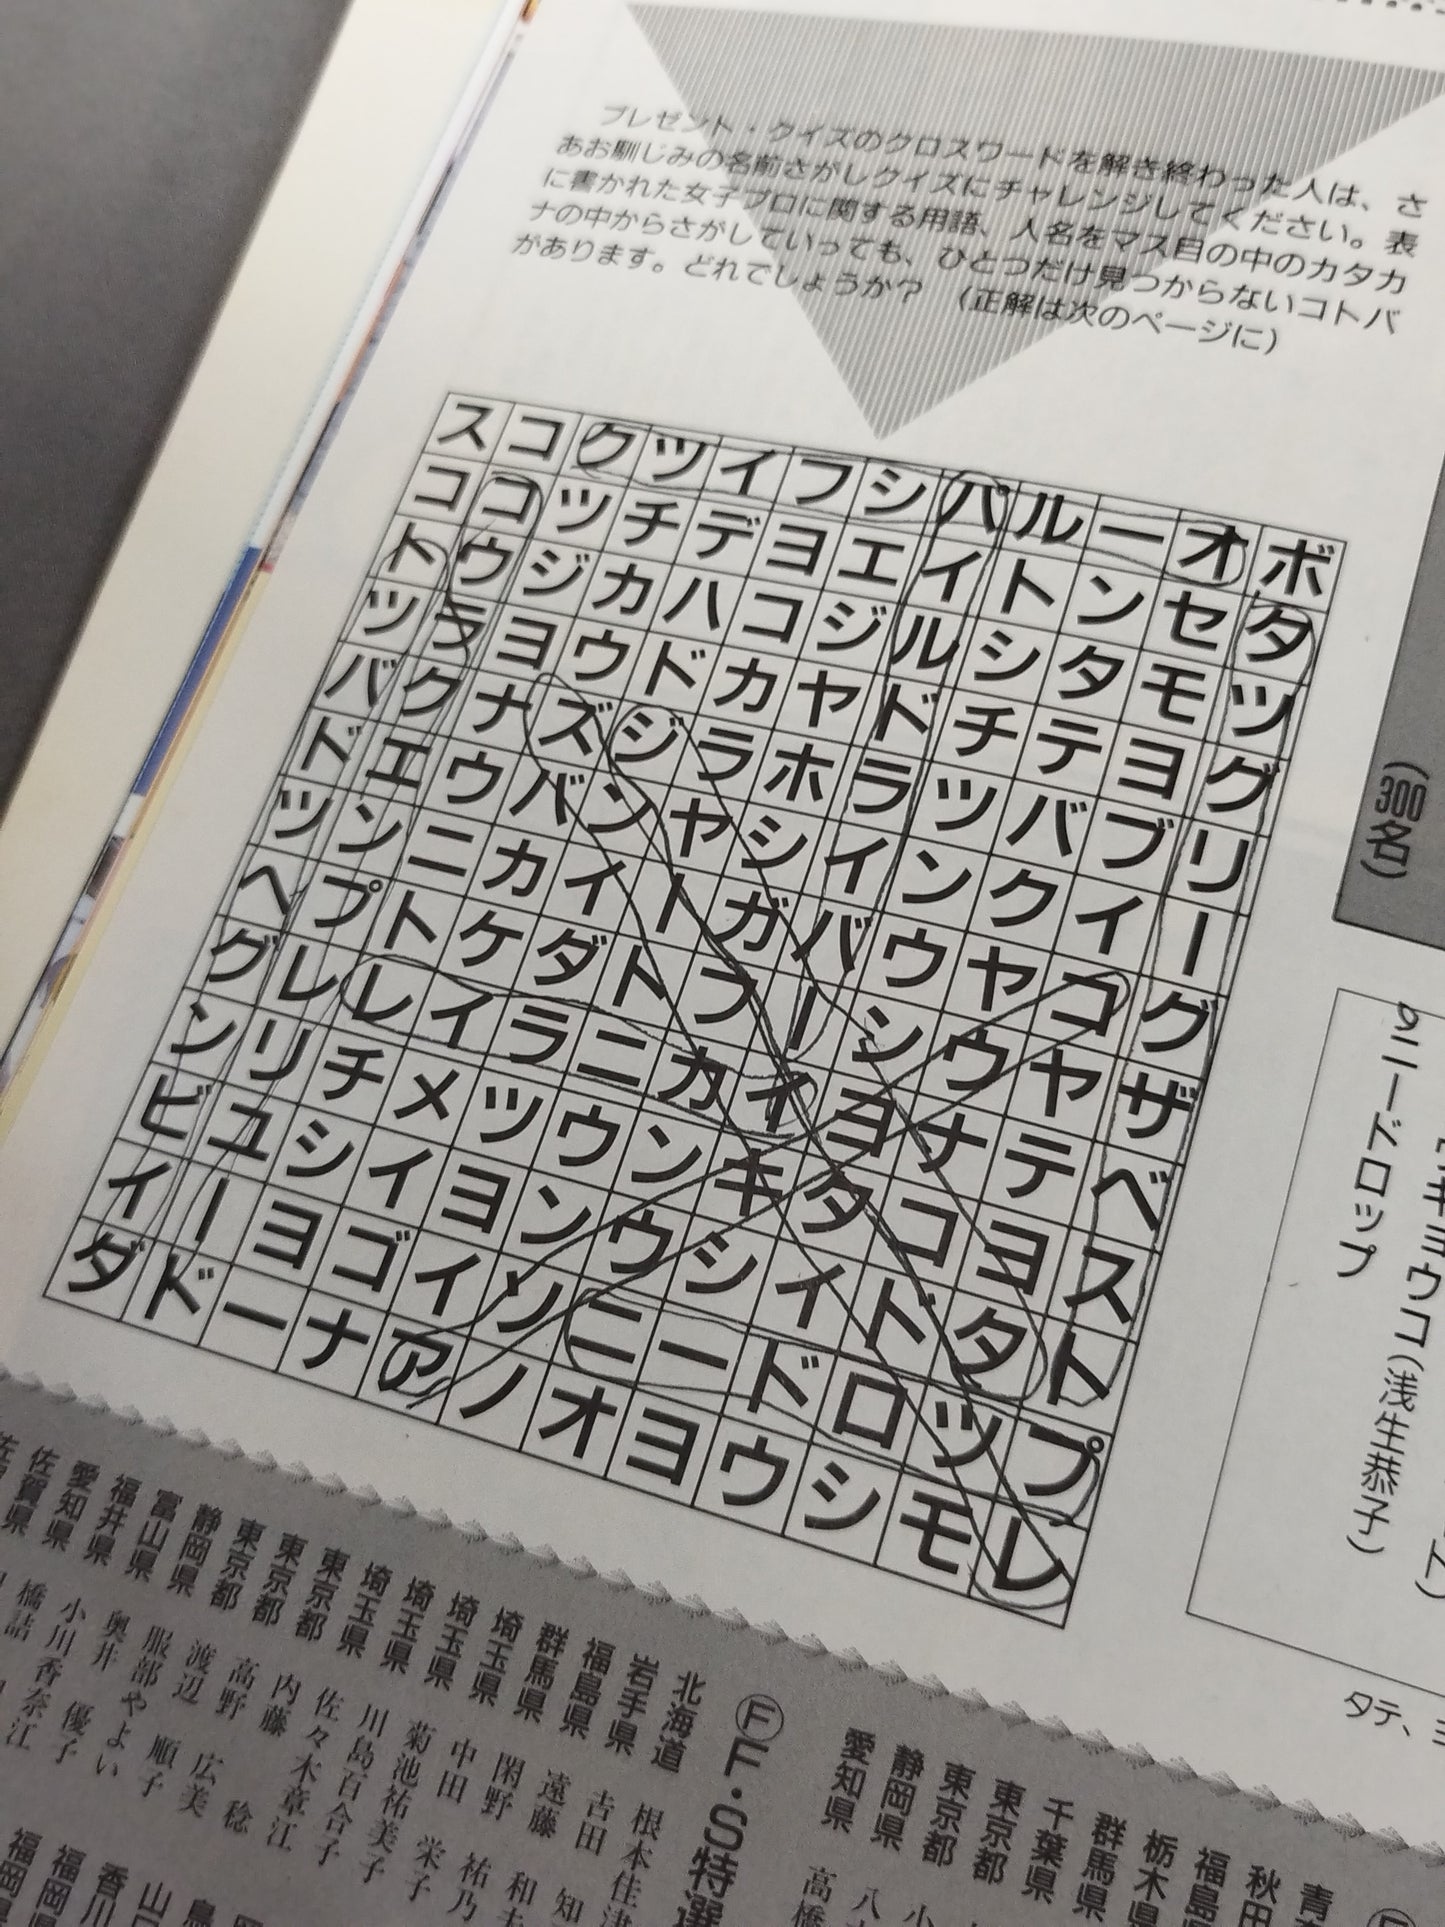 プレゼント・クイズのクロスワードを解き終わった人は、さ
あお馴じみの名前さがしクイズにチャレンジしてください。表
に書かれた女子プロに関する用語、人名をマス目の中のカタカ
ナの中からさがしていっても、ひとつだけ見つからないコトバ
があります。どれでしょうか？　（正解は次のページに）
スコクツイフシパルーオボ
ココツチデヨエイトンセタ
トウジカハコジルシタモツ
ツラヨウドカヤドチテヨグ
バクナズジラホラツバブリ
ドエウバンヤシインクイー
ツンニカイーガバウヤコグ
ヘプトケダトフーシウヤザ
グレレイラニカイヨナテベ
ンリチメツウンキタコヨス
ビュシイヨンウシイドタト
イーヨゴイソニードロップ
ダドーナアノオヨウシモレ
（300名）
キョウコ（浅生恭子）
ニードロップ
タテ、ヨ
Ⓕ F・S特選
北海道 根本佳津
岩手県 吉田
福島県 遠藤
群馬県 閑野 祐乃
埼玉県 中田 栄子
埼玉県 菊池祐美子
埼玉県 川島百合子
埼玉県 佐々木章江
東京都 内藤 稔
東京都 高野 広美
東京都 渡辺 順子
静岡県 服部やよい
富山県 奥井 優子
福井県 小川香奈江
愛知県 橋詰
佐賀県
青
秋田
福島県
栃木県
群馬県
千葉県
東京都
東京都
静岡県
愛知県 高橋